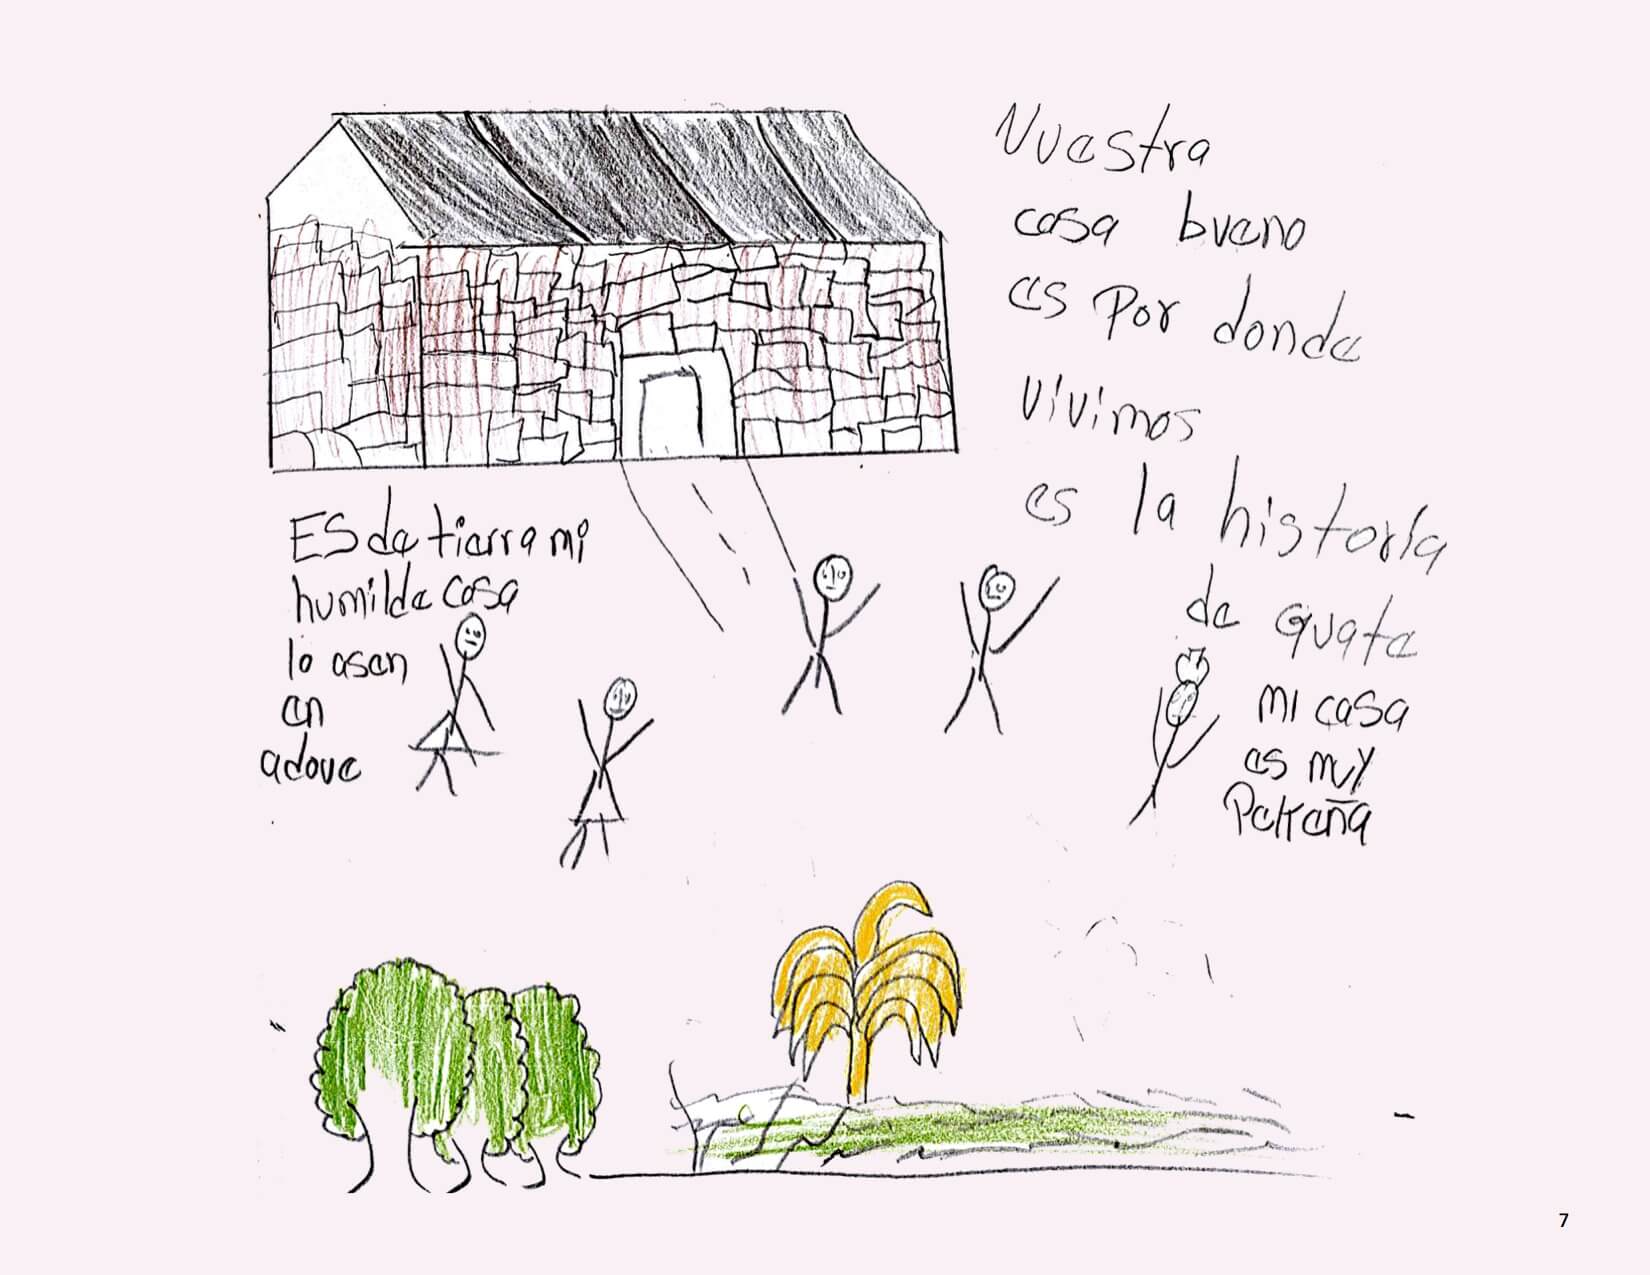 Nuestra
casa bueno
es Por donde
vivimos
es la historia
de Guate
mi casa
es muy
Pekeña
ES de tierra mi
humilde casa
lo asen
en
adove
7